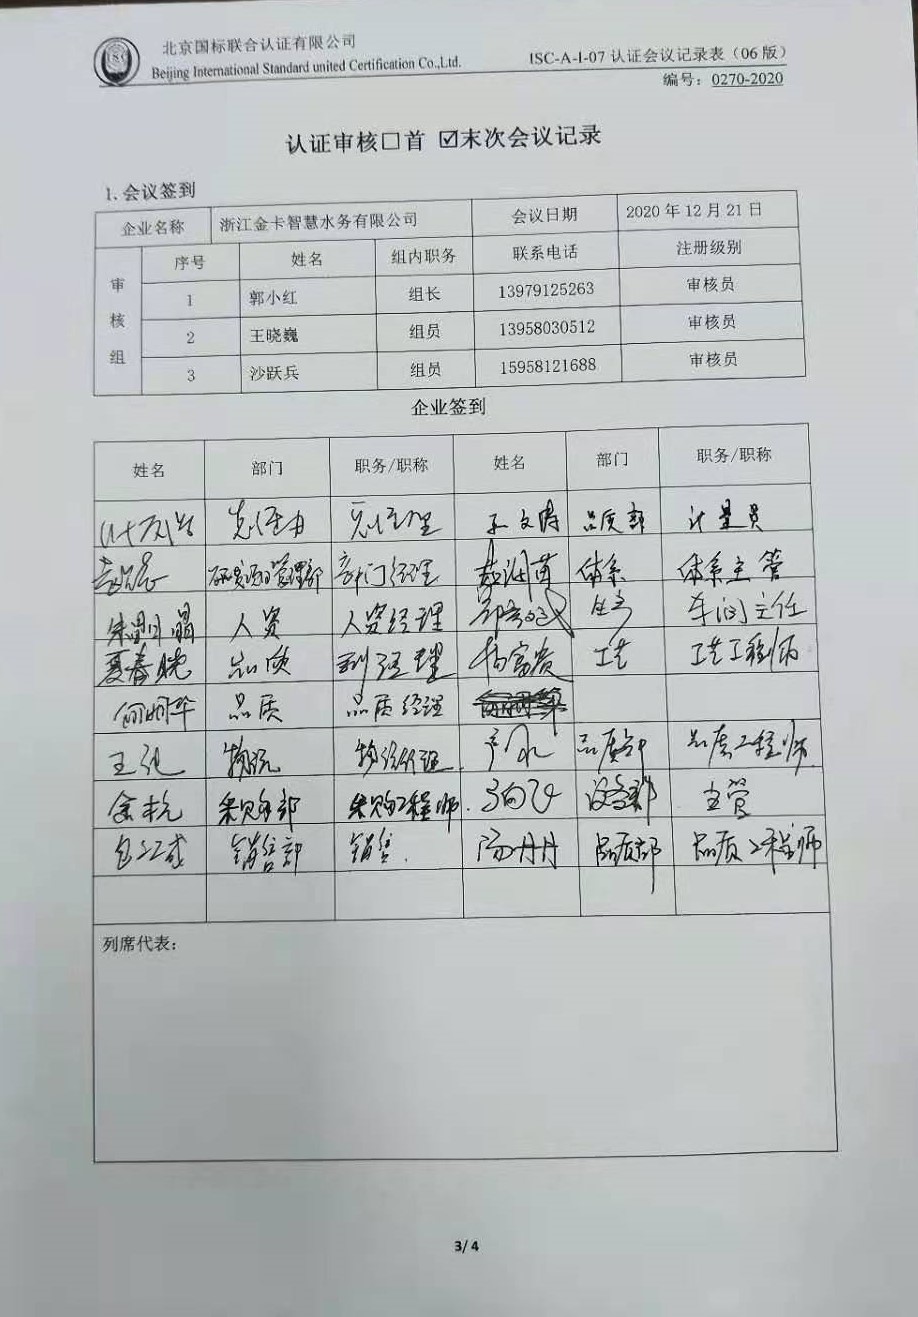 北京国标联合认证有限公司
Beijing International Standard united Certification Co.,Ltd.
ISC-A-I-07 认证会议记录表（06 版）
编号：0270-2020
认证审核☐首 ☑末次会议记录
1. 会议签到
企业名称 浙江金卡智慧水务有限公司 会议日期 2020 年 12 月 21 日
审核组
序号 姓名 组内职务 联系电话 注册级别
1 郭小红 组长 13979125263 审核员
2 王晓巍 组员 13958030512 审核员
3 沙跃兵 组员 15958121688 审核员
企业签到
姓名 部门 职务/职称 姓名 部门 职务/职称
总经理 文涛 品质部 计量员
部门经理 体系 体系主管
人资 人资经理 生产 车间主任
夏春晓 品质 副经理 杨富贵 工艺 工艺工程师
品质 品质经理
王 物流 物流经理 品质部 品质工程师
余杭 采购部 采购工程师 设备部 主管
销售部 销售 汤丹丹 品质部 品质工程师
列席代表：
3/ 4